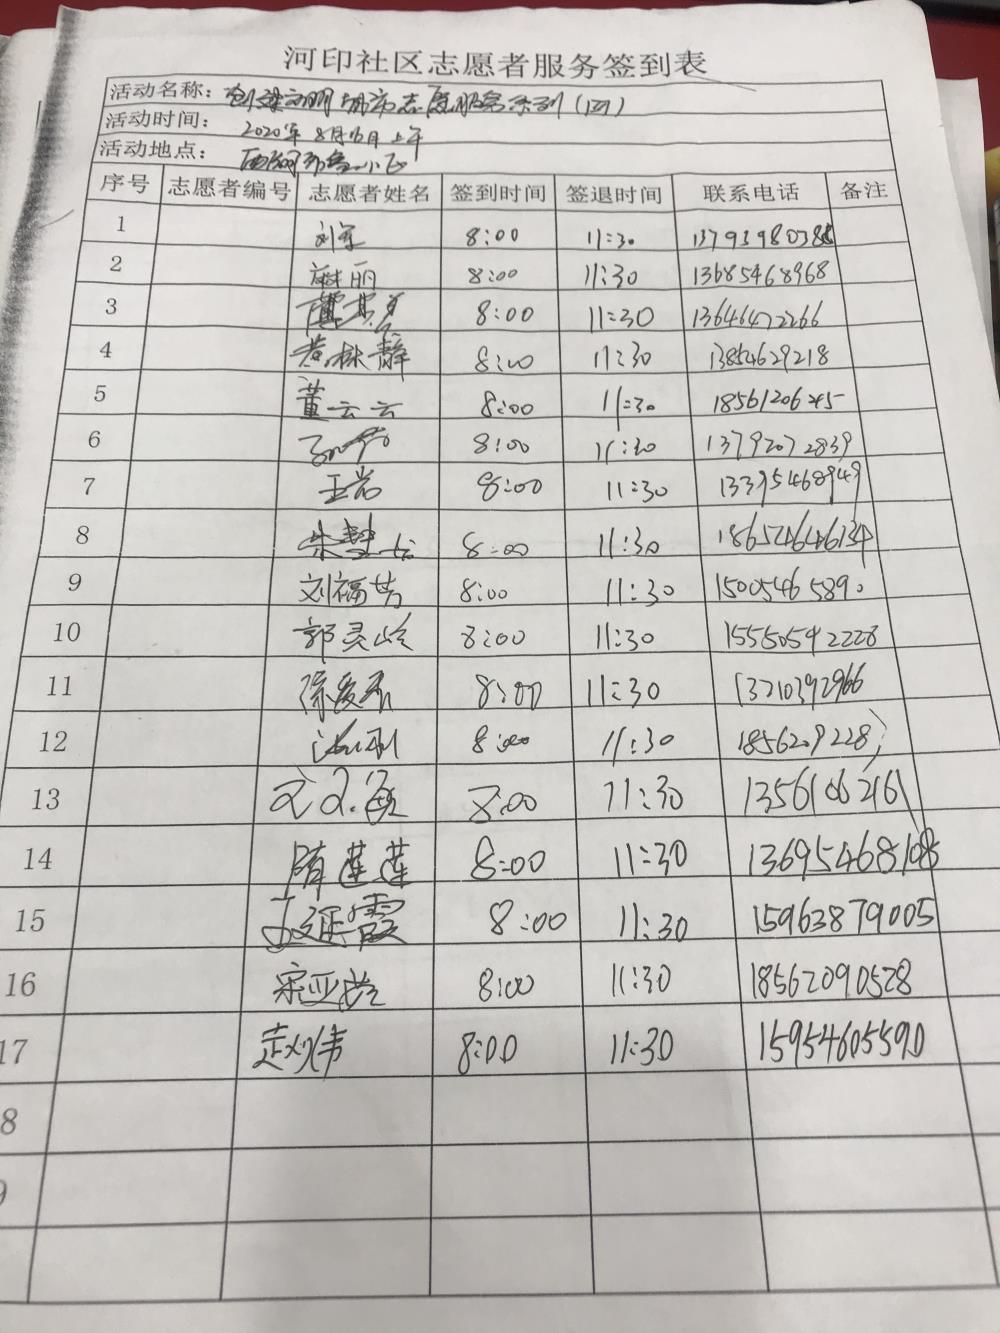 河印社区志愿者服务签到表
活动名称：创建文明城市志愿服务系列（四）
活动时间：2020年8月16日上午
活动地点：
序号 志愿者编号 志愿者姓名 签到时间 签退时间 联系电话 备注
1 刘军 8:00 11:30
2 麻丽 8:00 11:30 13685468968
3 8:00 11:30 13646472266
4 黄林静 8:00 11:30 13854629218
5 董云云 8:00 11:30 18561206245
6 8:00 11:30 13792072839
7 王岩 8:00 11:30 13395468949
8 8:00 11:30
9 刘福芳 8:00 11:30 15005465890
10 郭灵玲 8:00 11:30 15550542228
11 徐爱君 8:00 11:30 13210392966
12 8:00 11:30
13 8:00 11:30 13561062161
14 隋莲莲 8:00 11:30 13695468108
15 王延霞 8:00 11:30 15963879005
16 宋亚玲 8:00 11:30 18562090528
17 赵伟 8:00 11:30 15954605590
8
9